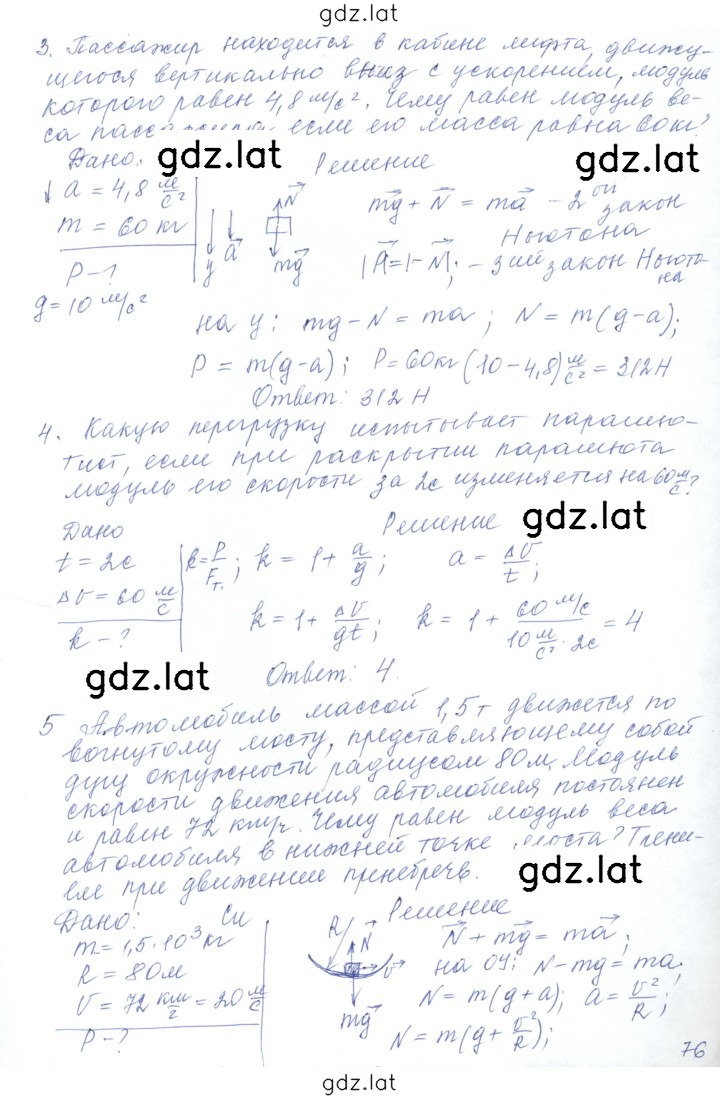 gdz.lat
3. Пассажир находится в кабине лифта, движу-
щегося вертикально вниз с ускорением, модуль
которого равен 4,8 м/с². Чему равен модуль ве-
са пассажира, если его масса равна 60кг?
gdz.lat gdz.lat
Дано: Решение
↓ a = 4,8 м/с² N mg + N = ma - 2ой закон
m = 60 кг a Ньютона
P - ? y mg |P|=|-N|; - 3ий закон Ньюто-
на
g = 10 м/с²
на y: mg - N = ma; N = m(g-a);
P = m(g-a); P = 60кг(10-4,8) м/с² = 312Н
Ответ: 312 Н
4. Какую перегрузку испытывает парашю-
тист, если при раскрытии парашюта
модуль его скорости за 2с изменяется на 60 м/с?
gdz.lat
Дано Решение
t = 2с k = P/Fт; k = 1 + a/g; a = Δv/t;
Δv = 60 м/с
k - ? k = 1 + Δv/gt; k = 1 + 60 м/с / 10 м/с² · 2с = 4
gdz.lat
Ответ: 4.
5 Автомобиль массой 1,5т движется по
вогнутому мосту, представляющему собой
дугу окружности радиусом 80м. Модуль
скорости движения автомобиля постоянен
и равен 72 км/г. Чему равен модуль веса
автомобиля в нижней точке моста? Трени-
ем при движении пренебречь.
gdz.lat
Дано: Си Решение
m = 1,5·10³ кг R N N + mg = ma;
R = 80м v на OY: N - mg = ma;
v = 72 км/г = 20 м/с mg N = m(g+a); a = v²/R;
P - ? N = m(g + v²/R);
76
gdz.lat